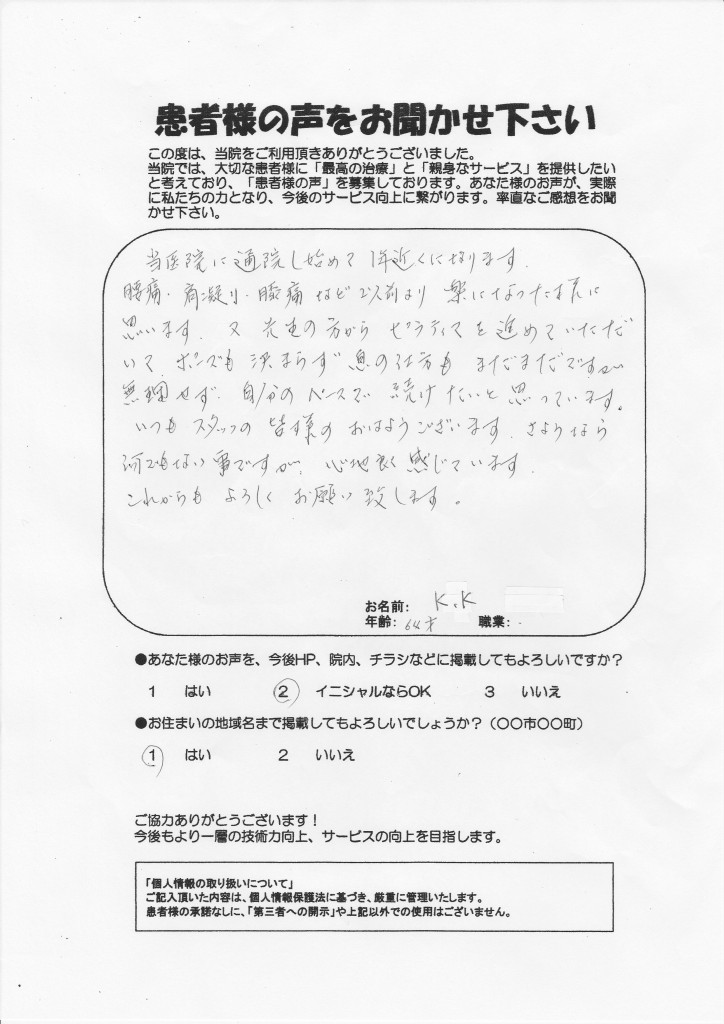 患者様の声をお聞かせ下さい
この度は、当院をご利用頂きありがとうございました。
当院では、大切な患者様に「最高の治療」と「親身なサービス」を提供したい
と考えており、「患者様の声」を募集しております。あなた様のお声が、実際
に私たちの力となり、今後のサービス向上に繋がります。率直なご感想をお聞
かせ下さい。
当医院に通院し始めて1年近くになります。
腰痛・肩凝り・膝痛など以前より楽になった様に
思います。又先生の方からピラティスを進めていただだ
いて、ポーズも決まらず息の仕方もまだまだですが
無理せず、自分のペースで続けたいと思っています。
いつもスタッフの皆様のおはようございます、さようなら
何でもない事ですが、心地良く感じています。
これからもよろしくお願い致します。
お名前: K.K
年齢: 64才 職業:
●あなた様のお声を、今後HP、院内、チラシなどに掲載してもよろしいですか？
1 はい 2 イニシャルならOK 3 いいえ
●お住まいの地域名まで掲載してもよろしいでしょうか？（〇〇市〇〇町）
1 はい 2 いいえ
ご協力ありがとうございます！
今後もより一層の技術力向上、サービスの向上を目指します。
「個人情報の取り扱いについて」
ご記入頂いた内容は、個人情報保護法に基づき、厳重に管理いたします。
患者様の承諾なしに、「第三者への開示」や上記以外での使用はございません。